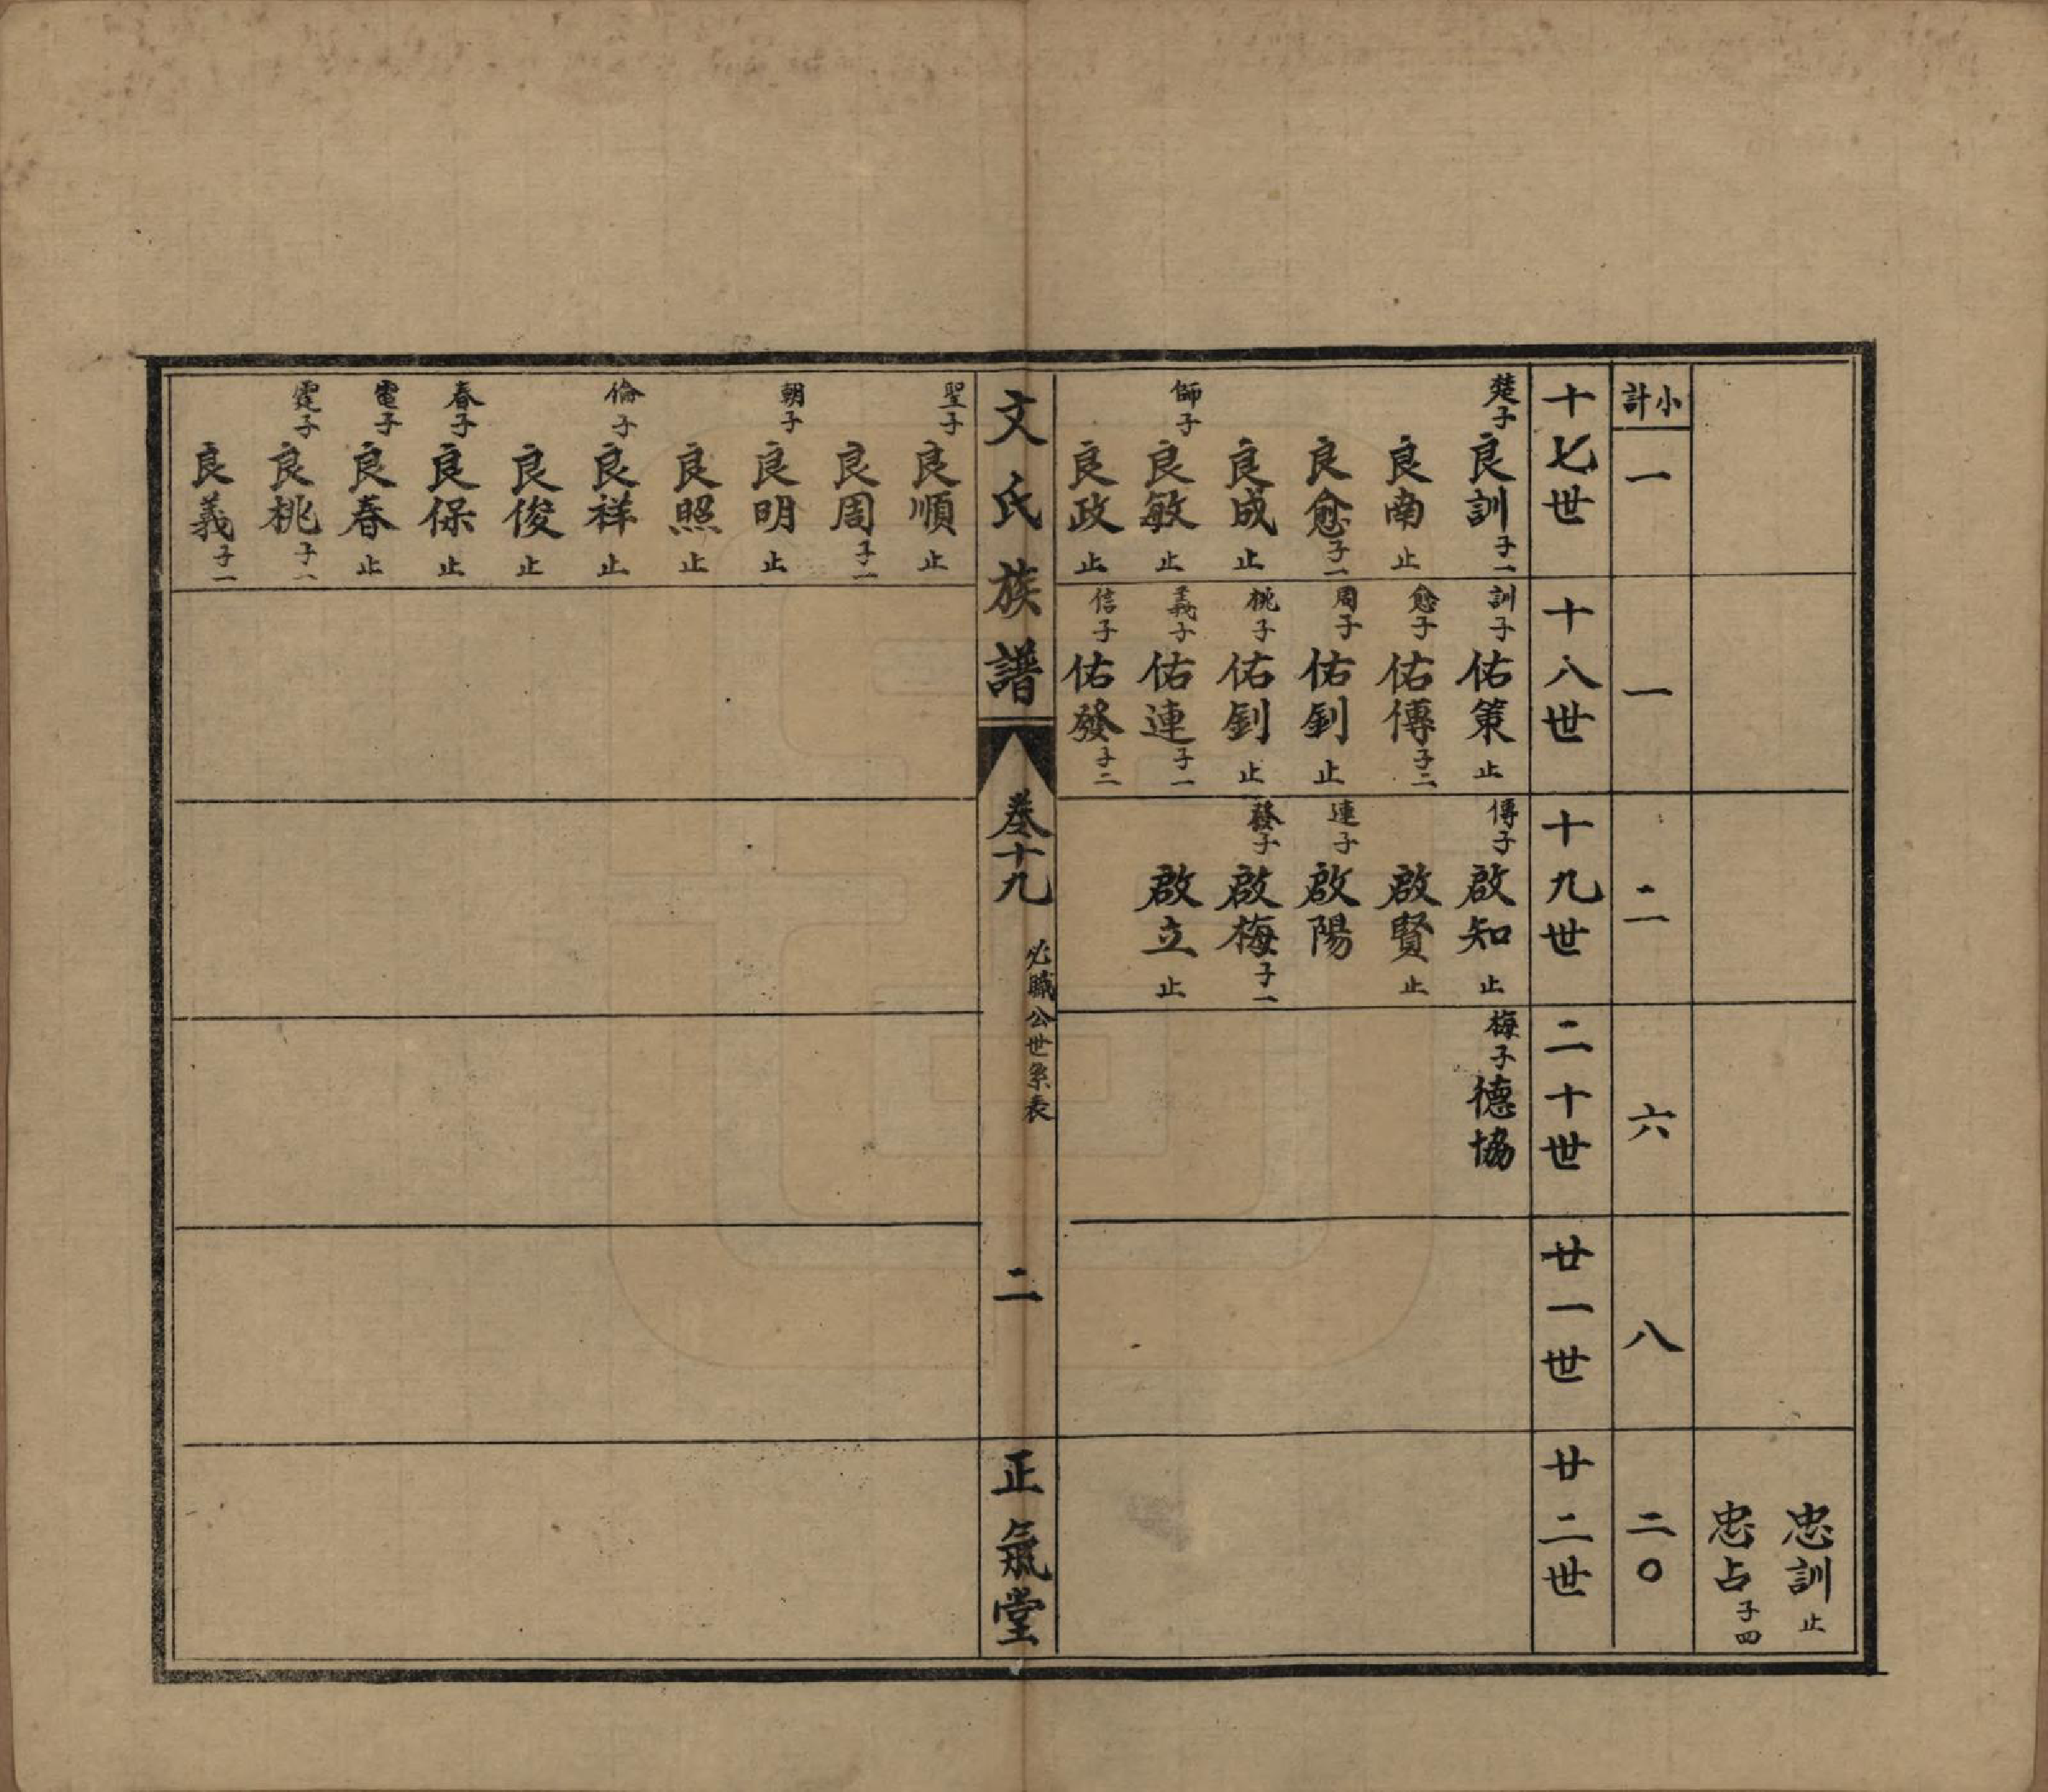 忠訓止
忠占子四
小計 一 一 二 六 八 二〇
十七世
楚子良訓子一
良南止
良愈子一
良成止
師子良敏止
良政止
聖子良順止
良周子一
朝子良明止
良照止
倫子良祥止
良俊止
春子良保止
電子良春止
霆子良桃子一
良義子一
十八世
訓子佑策止
愈子佑傳子二
周子佑釗止
桃子佑釗止
義子佑連子一
信子佑發子二
十九世
傳子啟知止
啟賢止
連子啟陽
發子啟梅子一
啟立止
二十世
梅子德協
廿一世
廿二世
文氏族譜 卷十九 必職公世系表 二 正氣堂